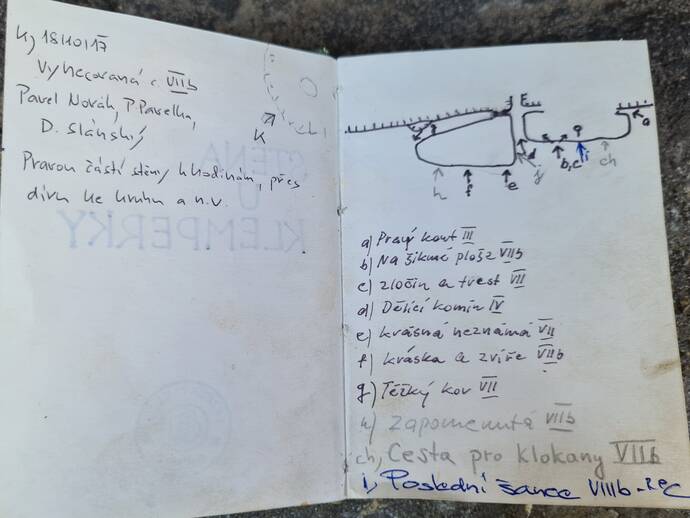 k) 18/10/17
Vyhecovaná c. VIIb
Pavel Novák, P. Pavelka,
D. Slánský
Pravou částí stěny k hodinám, přes
díru ke kruhu a n.v.
K
STĚNA
U
KLEMPERKY
E
a
b,c
i
ch
d
j
h
f
e
g
a) Pravý kout III
b) Na šikmé ploše VIIb
c) zločin a trest VII
d) Dělící komín IV
e) krásná neznámá VII
f) kráska a zvíře VIIb
g) Těžký kov VII
h) zapomenutá VIIb
ch) Cesta pro klokany VIIb
i) Poslední šance VIIIb